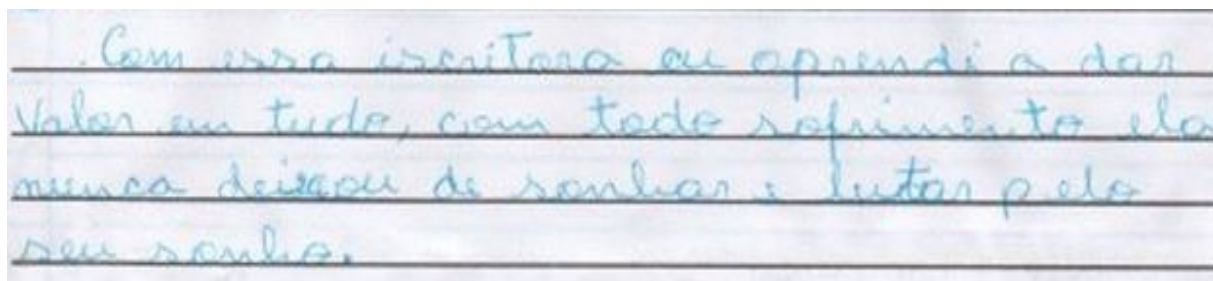 Com essa iscritora eu aprendi a dar
Valor em tudo, com todo sofrimento ela
nunca deixou de sonhar e lutar pelo
seu sonho.